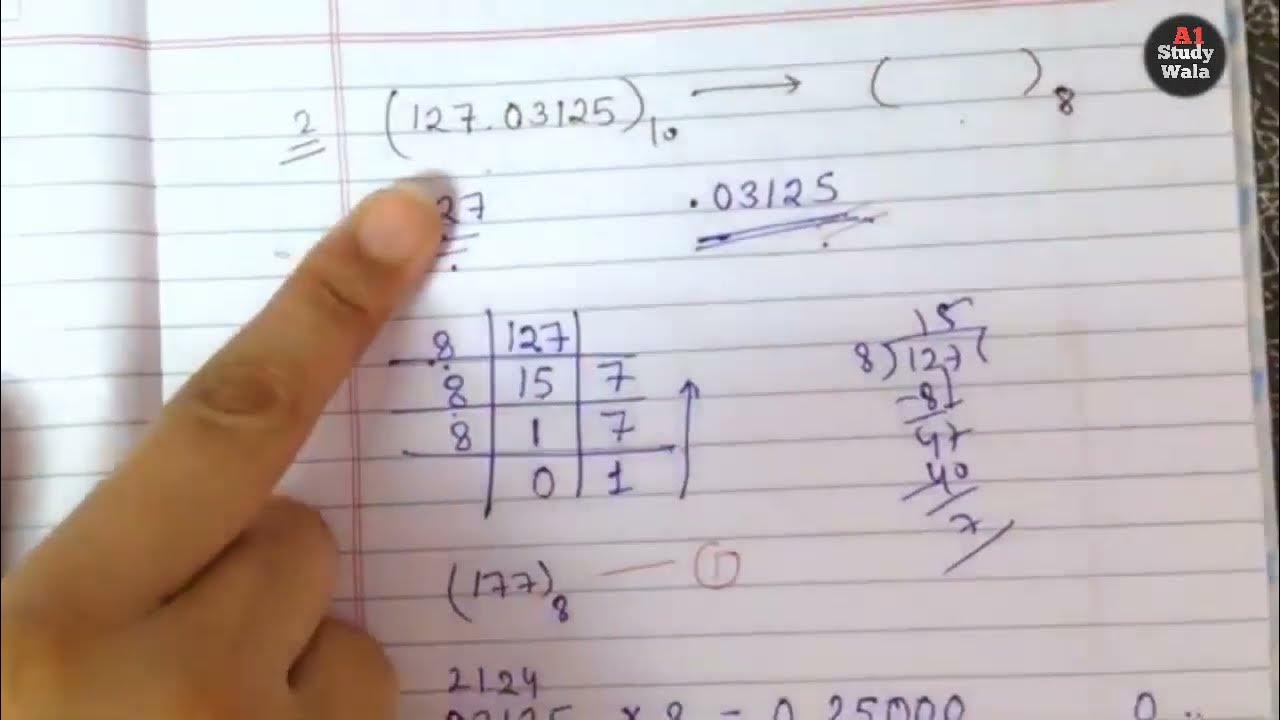 A1
Study
Wala
2 (127.03125)10 → ( )8
27 .03125
8 127
8 15 7
8 1 7
0 1
15
8)127(
-8
47
40
7
(177)8 — 1
2124
03125 × 8 = 0.25000 0